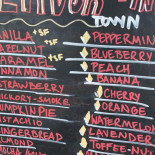 TOWN
ANILLA *SF
AZELNUT
ARAME *SF
INNAMON
TRAWBERRY
ICKORY-SMOKE
UMPKIN PIE
ISTACHIO
INGERBREAD
LMOND
PEPPERMIN
BLUEBERRY
PEACH
BANANA
CHERRY
ORANGE
WATERMELO
LAVENDER
TOFFEE-NU